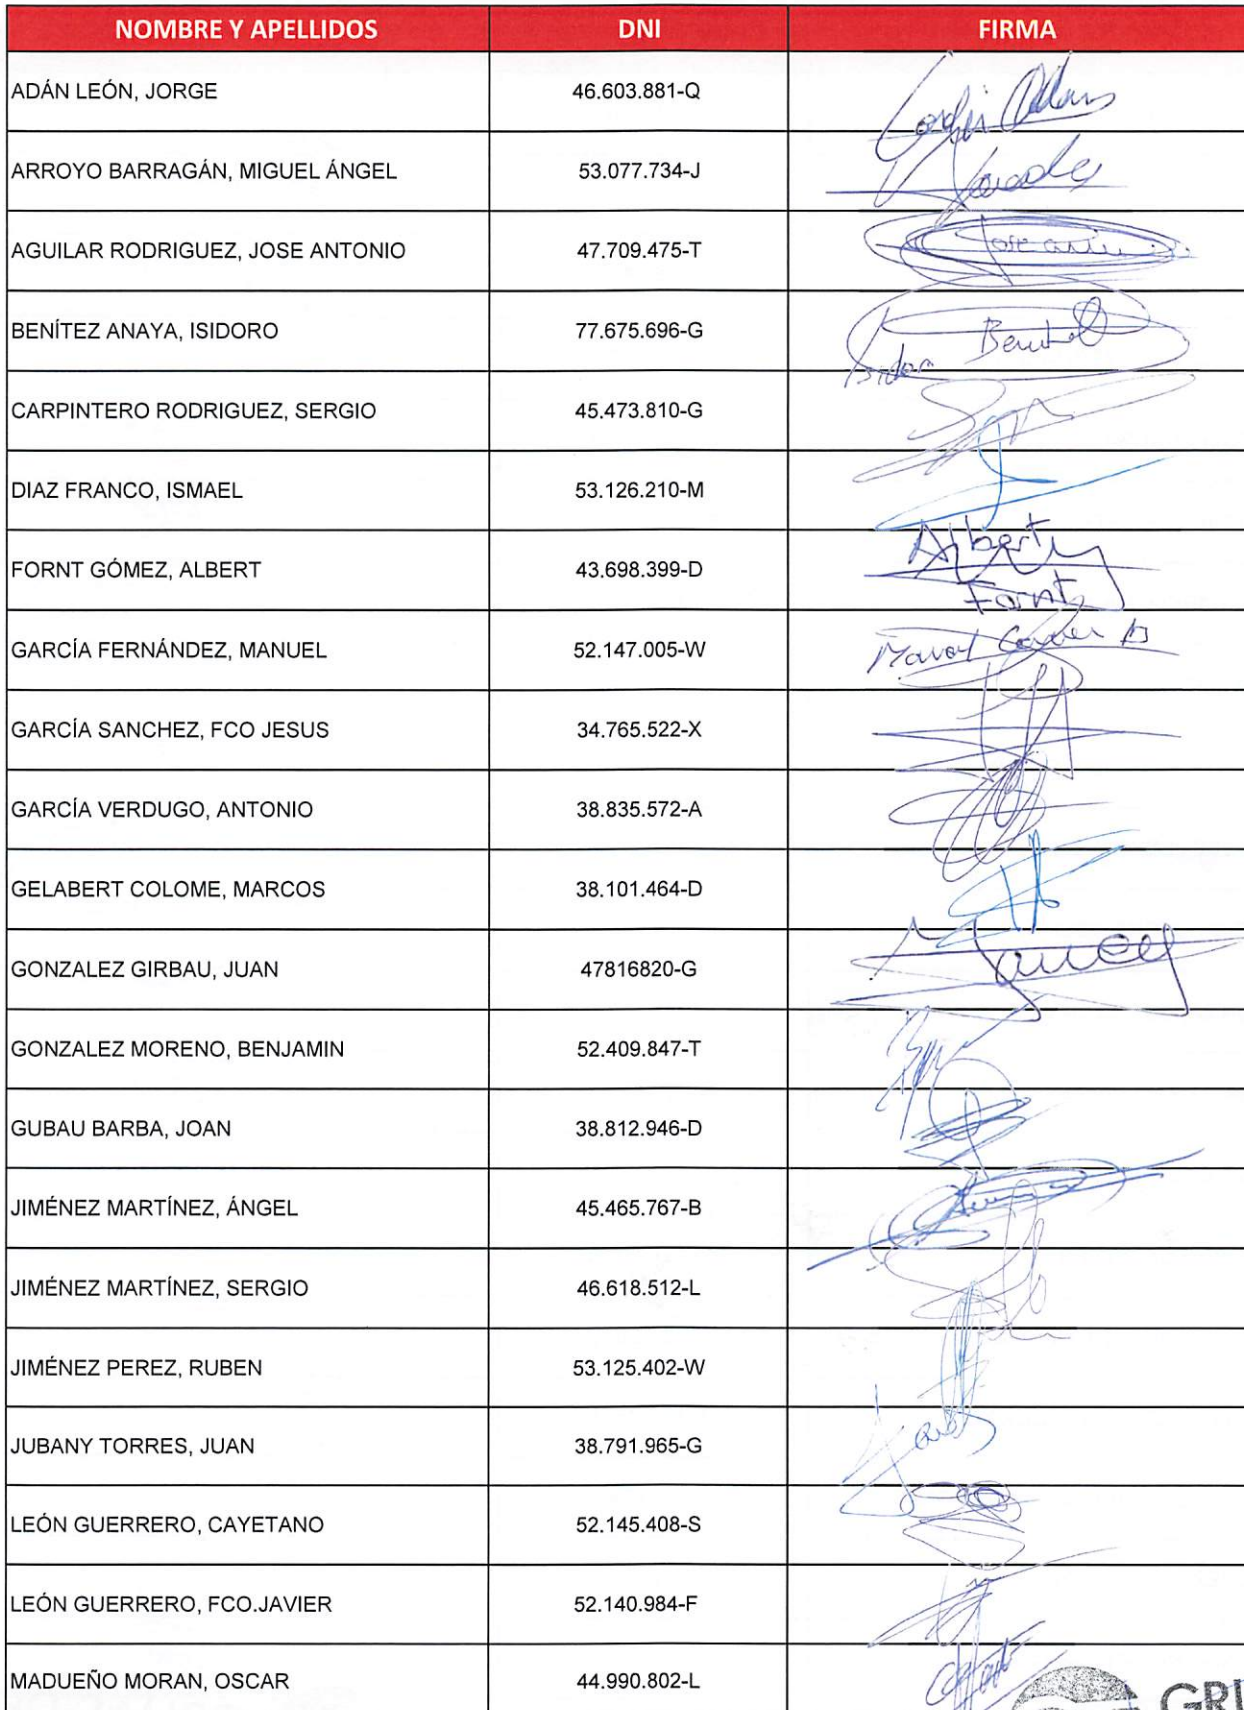 NOMBRE Y APELLIDOS DNI FIRMA
ADÁN LEÓN, JORGE 46.603.881-Q
ARROYO BARRAGÁN, MIGUEL ÁNGEL 53.077.734-J
AGUILAR RODRIGUEZ, JOSE ANTONIO 47.709.475-T
BENÍTEZ ANAYA, ISIDORO 77.675.696-G
CARPINTERO RODRIGUEZ, SERGIO 45.473.810-G
DIAZ FRANCO, ISMAEL 53.126.210-M
FORNT GÓMEZ, ALBERT 43.698.399-D Albert Fornt
GARCÍA FERNÁNDEZ, MANUEL 52.147.005-W
GARCÍA SANCHEZ, FCO JESUS 34.765.522-X
GARCÍA VERDUGO, ANTONIO 38.835.572-A
GELABERT COLOME, MARCOS 38.101.464-D
GONZALEZ GIRBAU, JUAN 47816820-G
GONZALEZ MORENO, BENJAMIN 52.409.847-T
GUBAU BARBA, JOAN 38.812.946-D
JIMÉNEZ MARTÍNEZ, ÁNGEL 45.465.767-B
JIMÉNEZ MARTÍNEZ, SERGIO 46.618.512-L
JIMÉNEZ PEREZ, RUBEN 53.125.402-W
JUBANY TORRES, JUAN 38.791.965-G
LEÓN GUERRERO, CAYETANO 52.145.408-S
LEÓN GUERRERO, FCO.JAVIER 52.140.984-F
MADUEÑO MORAN, OSCAR 44.990.802-L